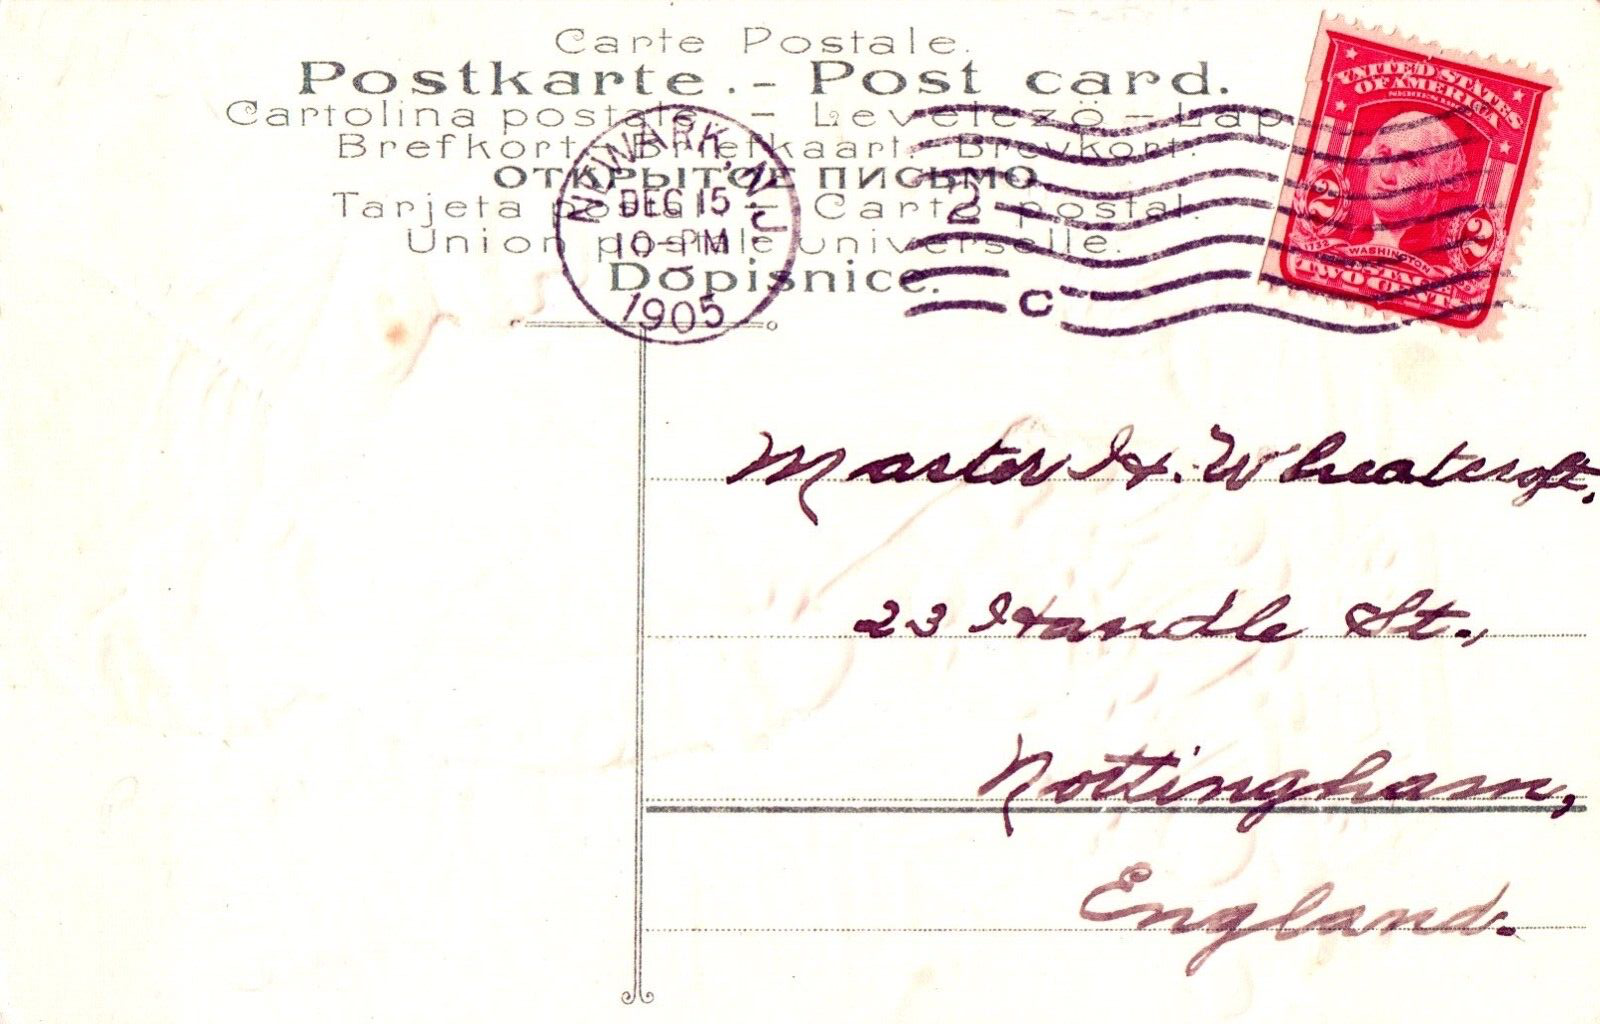 Carte Postale.
Postkarte. - Post card.
Cartolina postale. - Levelező - Lap.
Brefkort. Briefkaart. Brevkort.
ОТКРЫТОЕ ПИСЬМО
Tarjeta postal - Carta postal.
Union postale universelle.
Dopisnice.
NEWARK, N.J.
DEC 15
10-PM
1905
2
C
UNITED STATES
OF AMERICA
SERIES 1902
2 2
1732 WASHINGTON
TWO CENTS
Master H. Wheatcroft,
23 Handle St.,
Nottingham,
England.